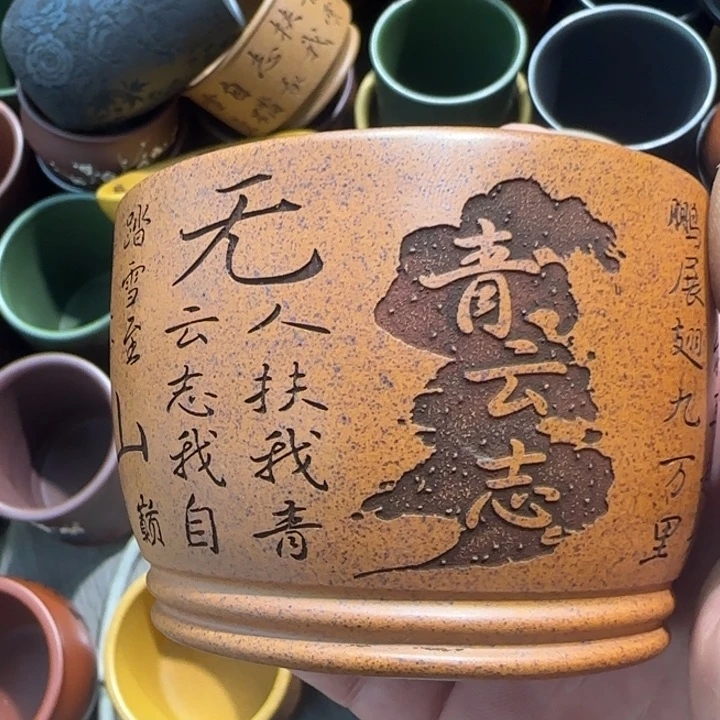 鹏展翅九万里
青云志
无人扶我青
云志我自
踏雪至山巅